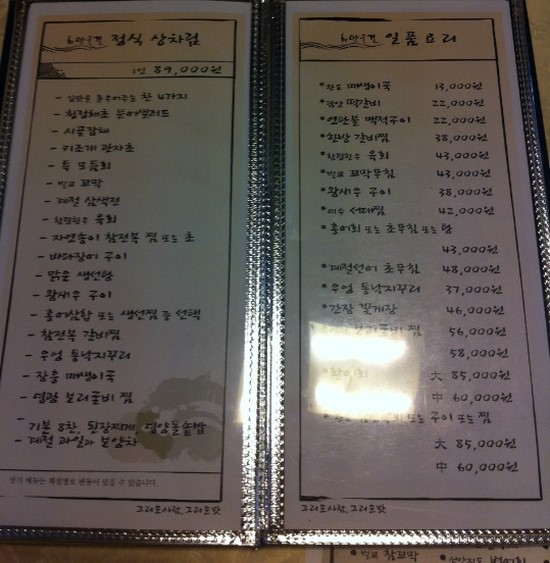 정식 상차림
1인 89,000원
- 입맛을 돋우어주는 찬 4가지
- 청정해초 문어샐러드
- 시골잡채
- 키조개 관자초
- 특 모듬회
- 벌교 꼬막
- 계절 삼색전
- 청정한우 육회
- 자연송이 참전복 찜 또는 초
- 바다장어 구이
- 맑은 생선탕
- 왕새우 구이
- 홍어삼합 또는 생선찜 중 선택
- 참전복 갈비찜
- 우엉 통낙지꾸리
- 장흥 매생이국
- 영광 보리굴비 찜
- 기본 8찬, 된장찌개, 영양돌솥밥
- 계절 과일과 보양차
상기 메뉴는 계절별로 변동이 있을 수 있습니다.
그리운사람, 그리운맛
일품요리
매생이국 13,000원
떡갈비 22,000원
* 연탄불 맥적구이 22,000원
* 한방 갈비찜 38,000원
* 청정한우 육회 43,000원
* 벌교 꼬막무침 43,000원
* 왕새우 구이 38,000원
* 여수 서대찜 42,000원
* 홍어회 또는 초무침 또는 탕
43,000원
* 계절선어 초무침 48,000원
* 우엉 통낙지꾸리 37,000원
* 간장 꽃게장 46,000원
보리굴비 찜 56,000원
58,000원
大 85,000원
中 60,000원
또는 구이 또는 찜
大 85,000원
中 60,000원
그리운사람, 그리운맛
* 벌교 참꼬막